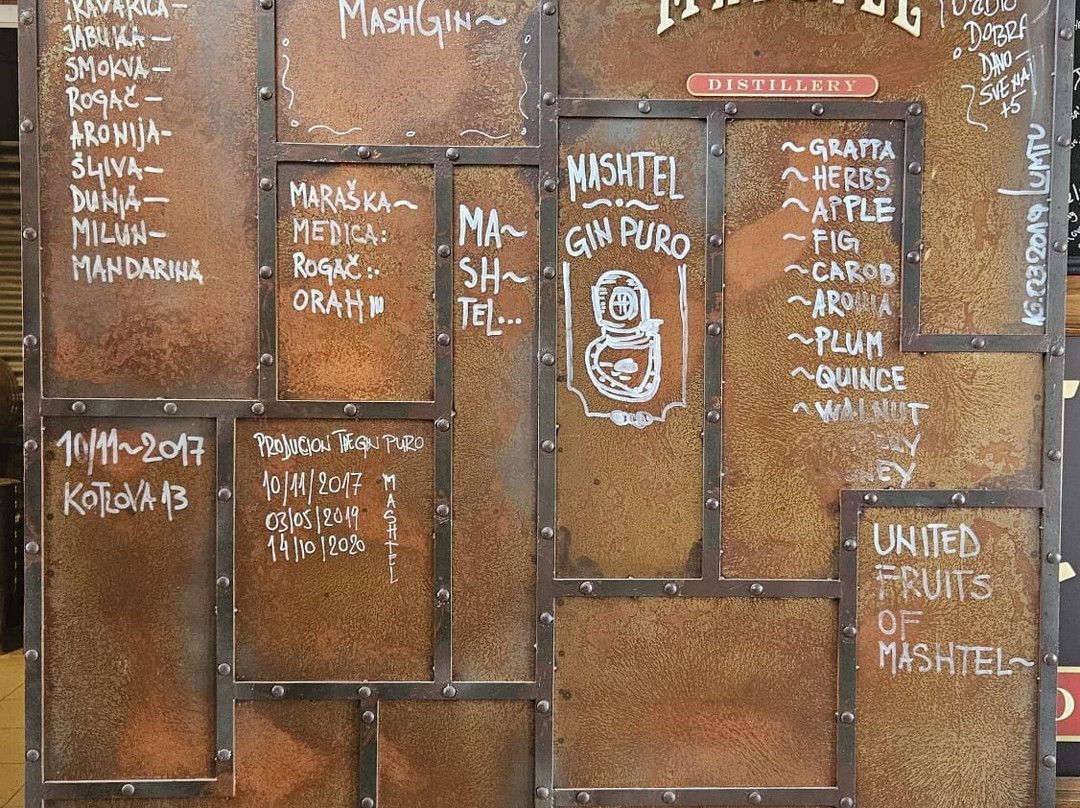 TRAVARICA~
JABUKA—
SMOKVA—
ROGAČ—
ARONIJA—
ŠLJIVA—
DUNJA—
MILUN—
MANDARINA
MASHGIN~
DISTILLERY
DOBRA
DAVO—
SVEMA
+5
16.03.2019
MARAŠKA~
MEDICA:
ROGAČ:·
ORAH
MA~
SH~
TEL...
MASHTEL
GIN PURO
~GRAPPA
~HERBS
~APPLE
~FIG
~CAROB
~ARONIA
~PLUM
~QUINCE
~WALNUT
EY
10/11~2017
KOTLOVA 13
PRODUCION THE GIN PURO
10/11/2017
03/05/2019
14/10/2020
MASHTEL
UNITED
FRUITS
OF
MASHTEL~